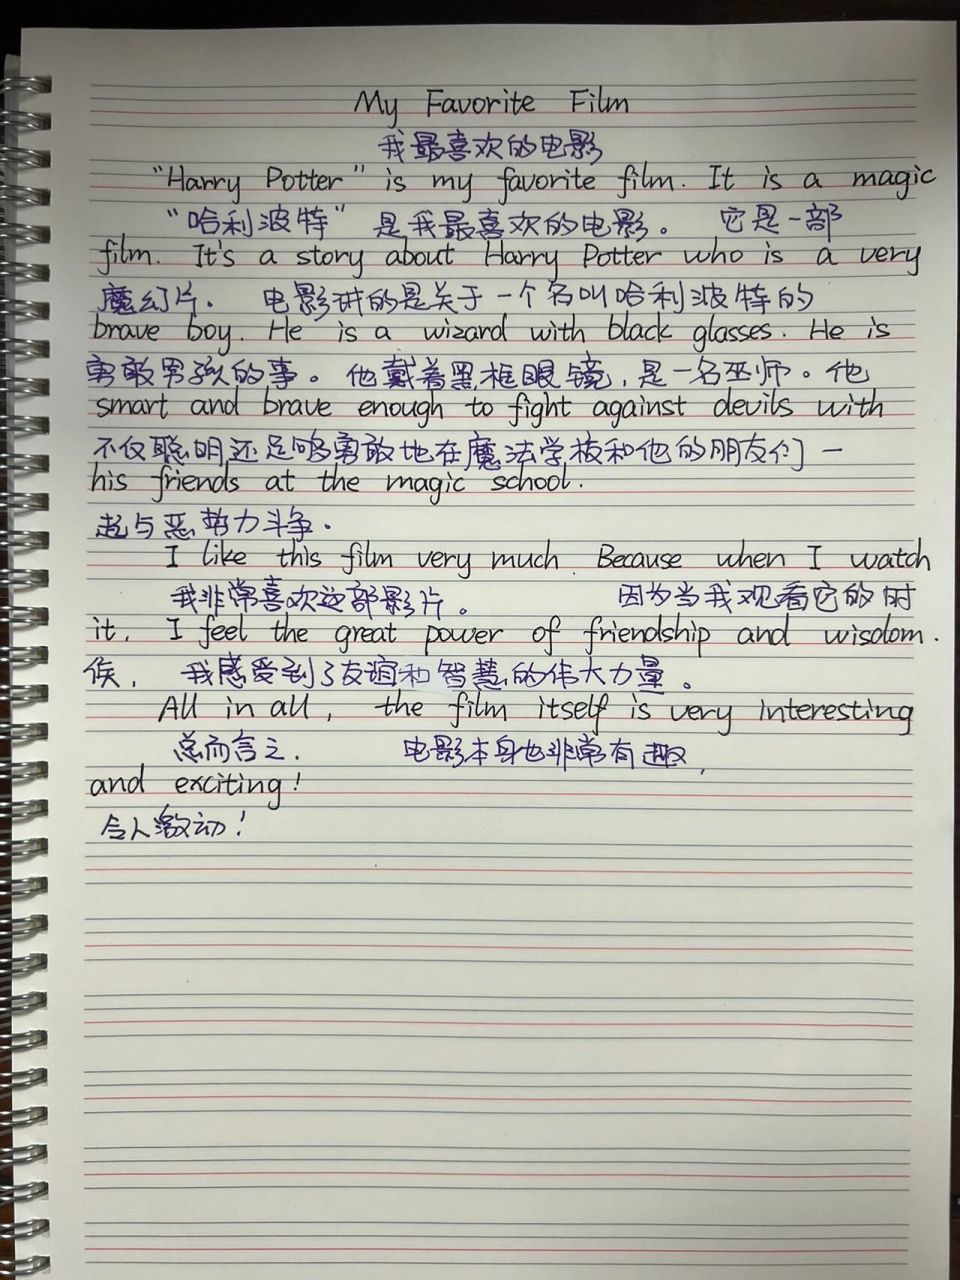 My Favorite Film
我最喜欢的电影
"Harry Potter" is my favorite film. It is a magic
"哈利波特" 是我最喜欢的电影。 它是一部
film. It's a story about Harry Potter who is a very
魔幻片. 电影讲的是关于一个名叫哈利波特的
brave boy. He is a wizard with black glasses. He is
勇敢男孩的事。他戴着黑框眼镜,是一名巫师。他
smart and brave enough to fight against devils with
不仅聪明还足够勇敢地在魔法学校和他的朋友们一
his friends at the magic school.
起与恶势力斗争.
I like this film very much. Because when I watch
我非常喜欢这部影片。 因为当我观看它的时
it, I feel the great power of friendship and wisdom.
候, 我感受到了友谊和智慧的伟大力量。
All in all, the film itself is very interesting
总而言之, 电影本身也非常有趣,
and exciting!
令人激动!